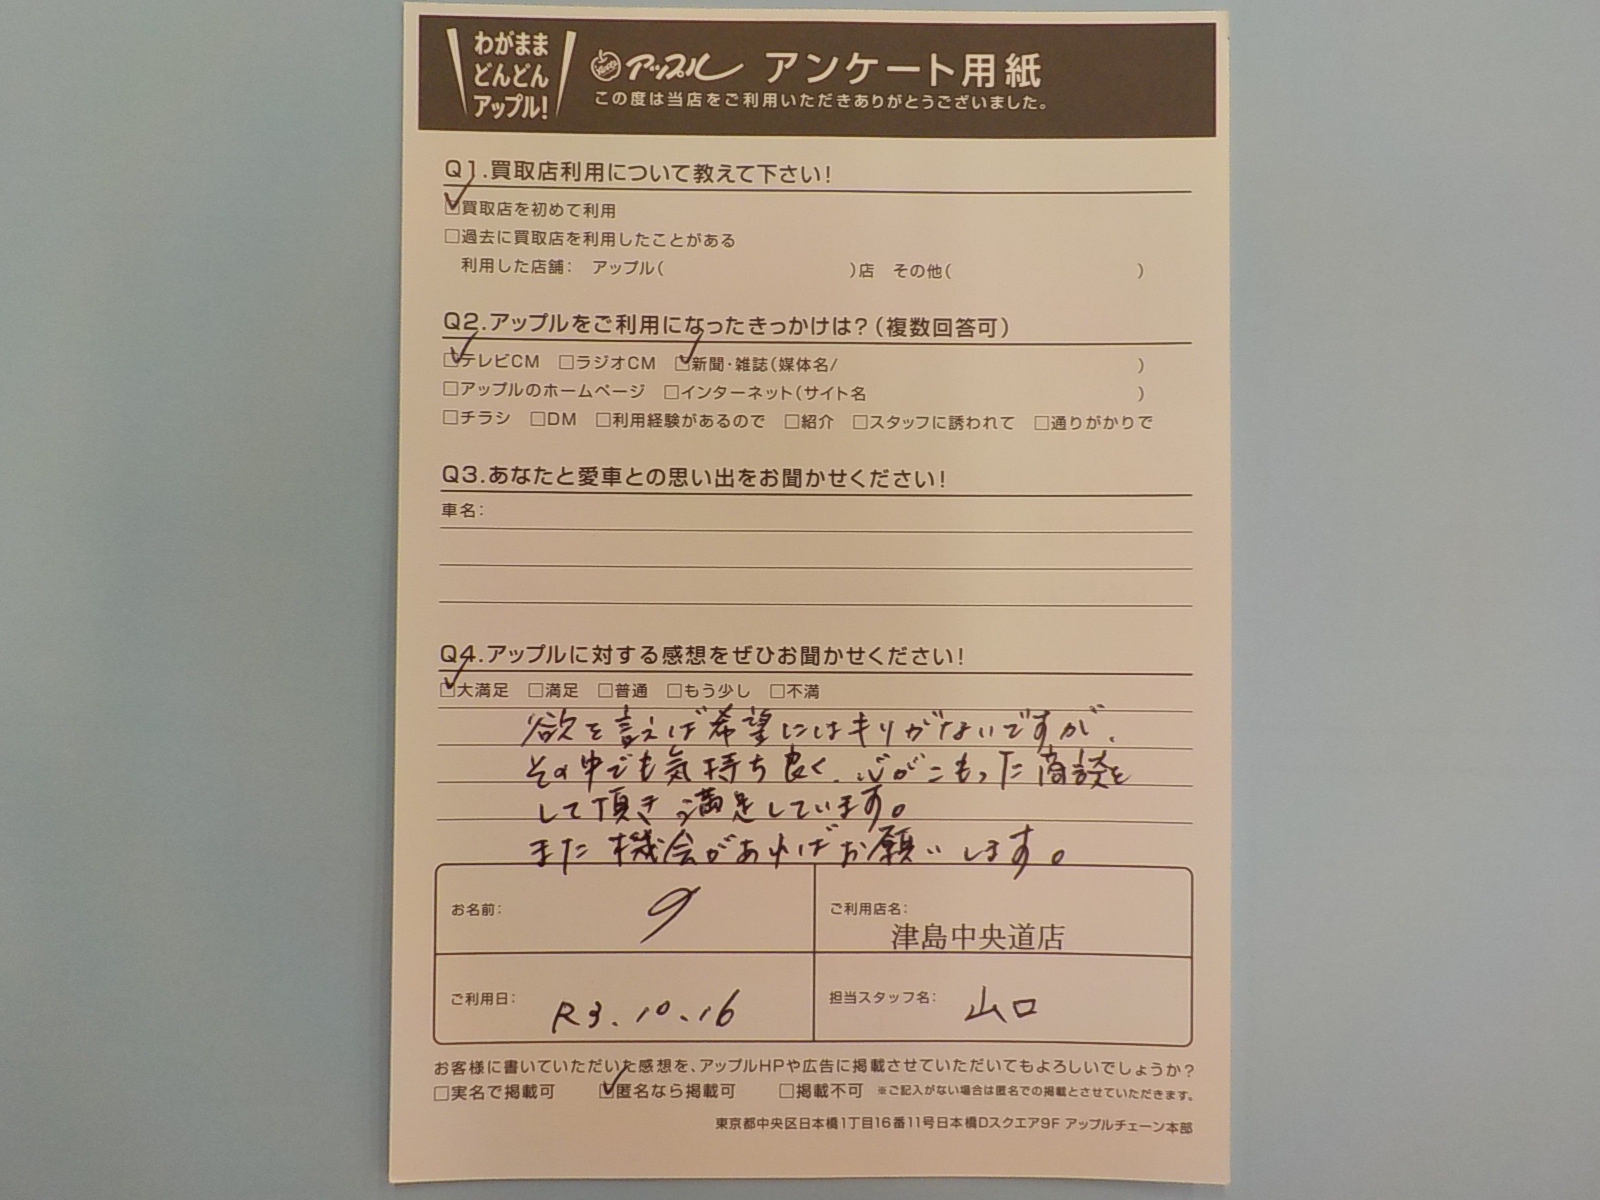 わがまま
どんどん
アップル!
アップル アンケート用紙
この度は当店をご利用いただきありがとうございました。
Q1.買取店利用について教えて下さい!
☑買取店を初めて利用
□過去に買取店を利用したことがある
利用した店舗: アップル( )店 その他( )
Q2.アップルをご利用になったきっかけは?(複数回答可)
☑テレビCM □ラジオCM ☑新聞・雑誌(媒体名/ )
□アップルのホームページ □インターネット(サイト名 )
□チラシ □DM □利用経験があるので □紹介 □スタッフに誘われて □通りがかりで
Q3.あなたと愛車との思い出をお聞かせください!
車名:
Q4.アップルに対する感想をぜひお聞かせください!
☑大満足 □満足 □普通 □もう少し □不満
欲を言えば希望にはキリがないですが、
その中でも気持ち良く、心がこもった商談を
して頂き満足しています。
また機会があればお願いします。
お名前:
ご利用店名:
津島中央道店
ご利用日: R3.10.16
担当スタッフ名: 山口
お客様に書いていただいた感想を、アップルHPや広告に掲載させていただいてもよろしいでしょうか?
□実名で掲載可 ☑匿名なら掲載可 □掲載不可 ※ご記入がない場合は匿名での掲載とさせていただきます。
東京都中央区日本橋1丁目16番11号日本橋Dスクエア9F アップルチェーン本部